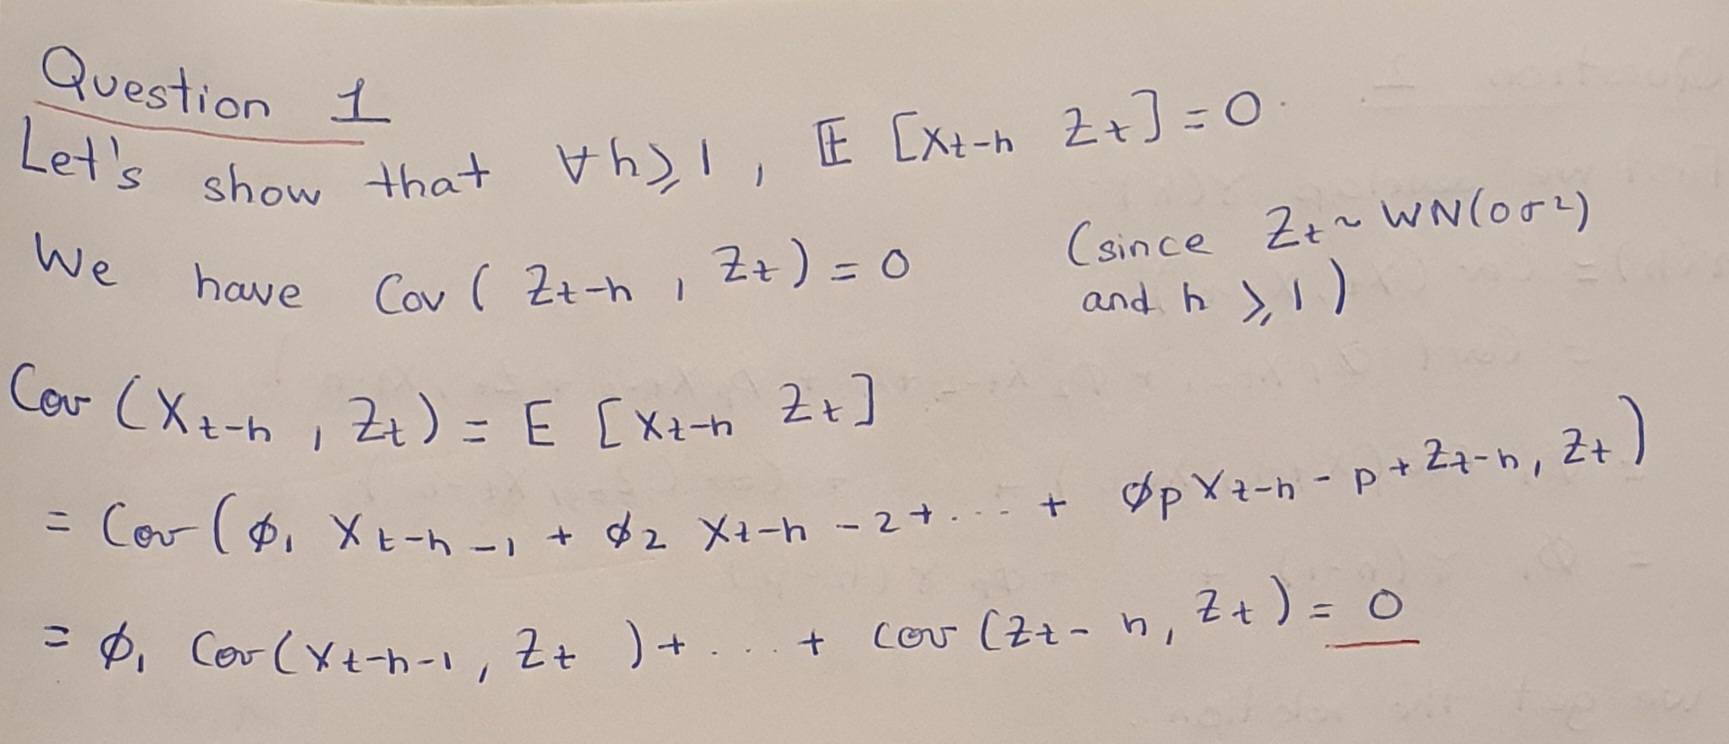 Question 1
Let's show that ∀h⩾1, 𝔼 [X_{t-h} Z_t] = 0.
We have Cov(Z_{t-h}, Z_t) = 0 (since Z_t ~ WN(0 σ²)
and h ⩾ 1)
Cov(X_{t-h}, Z_t) = E [X_{t-h} Z_t]
= Cov(ϕ₁ X_{t-h-1} + ϕ₂ X_{t-h-2} + .... + ϕ_p X_{t-h-p} + Z_{t-h}, Z_t)
= ϕ₁ Cov(X_{t-h-1}, Z_t) + ... + cov(Z_{t-h}, Z_t) = 0